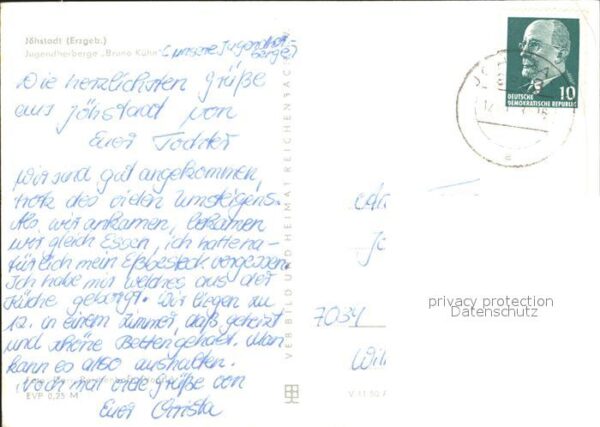 Jöhstadt (Erzgeb.)
Jugendherberge „Bruno Kühn"
(unsere Jugendher-
berge)
Die herzlichsten Grüße
aus Jöhstadt von
Eurer Tochter
Wir sind gut angekommen,
trotz des vielen Umsteigens.
Als wir ankamen, bekamen
wir gleich Essen, ich hatte na-
türlich mein Eßbesteck vergessen.
Ich habe mir welches aus der
Küche geborgt. Wir liegen zu
12. in einem Zimmer, daß geheizt
und schöne Betten gehabt. Man
kann es also aushalten.
Noch mal viele Grüße von
Eurer Christa
EVP 0,25 M
VEB BILD UND HEIMAT REICHENBACH
V 11 50 A
DEUTSCHE
DEMOKRATISCHE REPUBLIK
10
7034
privacy protection
Datenschutz